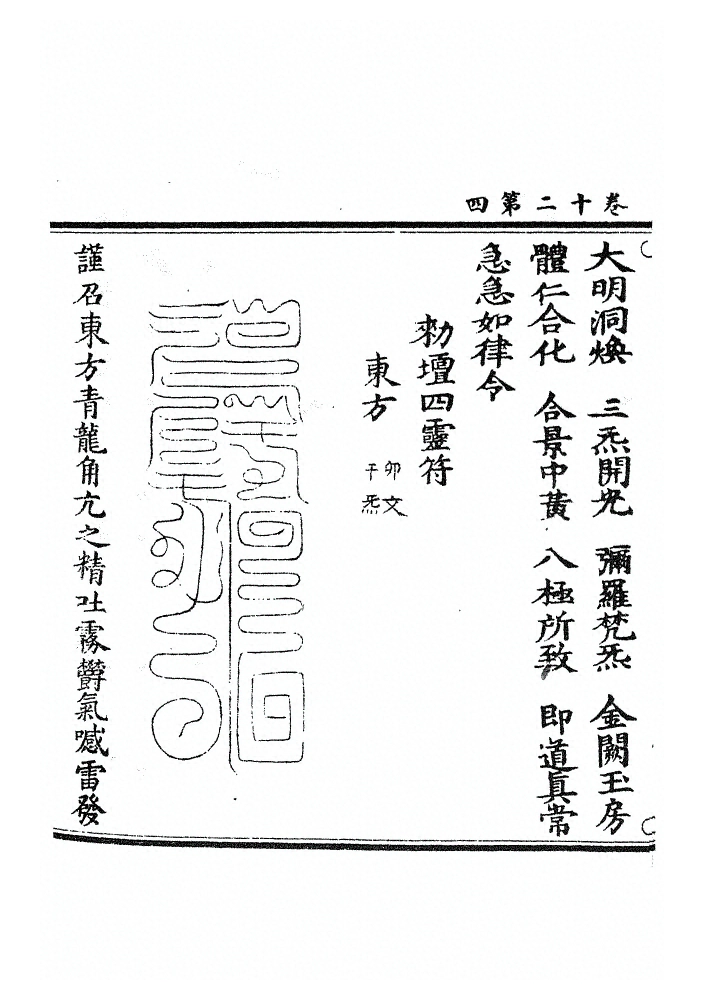 卷十二第四
大明洞煥　三炁開光　彌羅梵炁　金闕玉房
體仁合化　合景中黃　八極所致　即道真常
急急如律令
勑壇四靈符
東方
卯文
于炁
謹召東方青龍角亢之精吐霧欝氣喊雷發